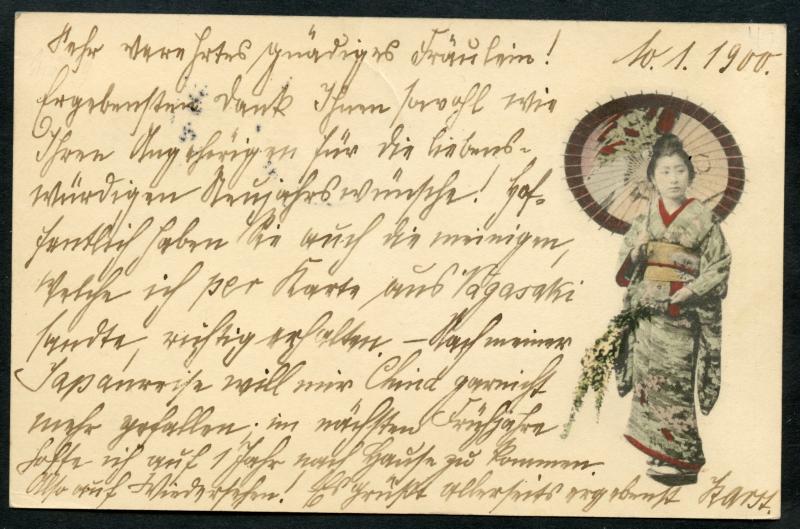 Sehr verehrtes gnädiges Fräulein! 10.1.1900.
Ergebensten Dank Ihnen sowohl wie
Ihren Angehörigen für die liebens-
würdigen Neujahrswünsche! Hof-
fentlich haben Sie auch die meinigen,
welche ich per Karte aus Nagasaki
sandte, richtig erhalten. – Nach meiner
Japanreise will mir China garnicht
mehr gefallen; im nächsten Frühjahre
hoffe ich auf 1 Jahr nach Hause zu kommen.
Also auf Wiedersehen! Es grüßt allerseits ergebenst